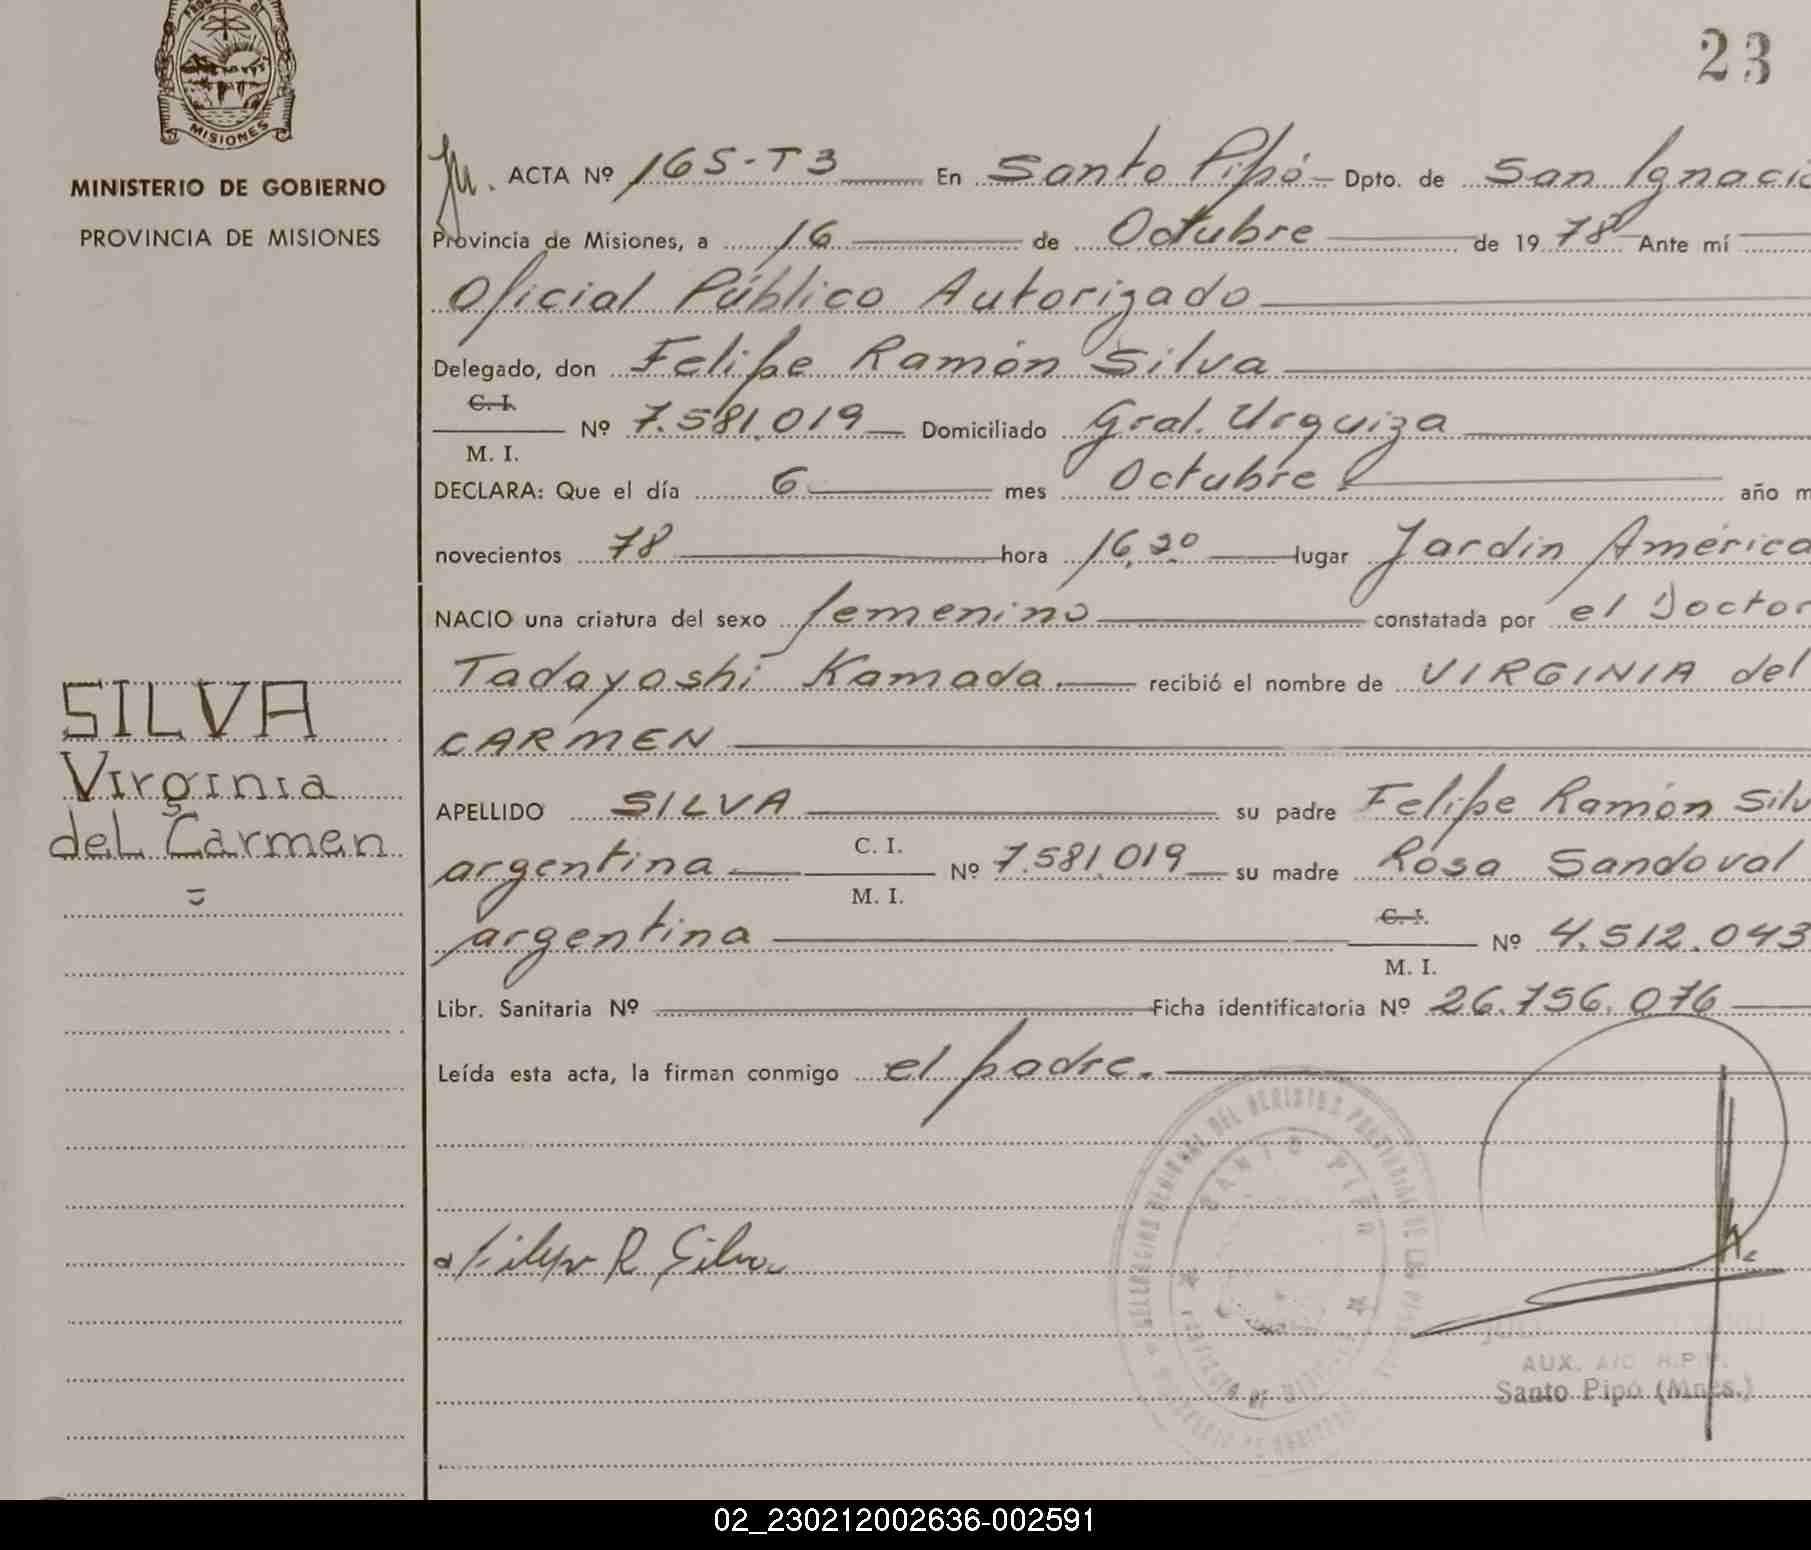 23
MISIONES
MINISTERIO DE GOBIERNO
PROVINCIA DE MISIONES
ACTA Nº 165-T3 En Santo Pipó Dpto. de San Ignacio
Provincia de Misiones, a 16 de Octubre de 1978 Ante mí
Oficial Público Autorizado
Delegado, don Felipe Ramón Silva
C. I.
Nº 7.581.019 Domiciliado Gral. Urquiza
M. I.
DECLARA: Que el día 6 mes Octubre año m
novecientos 78 hora 16,30 lugar Jardín América
NACIO una criatura del sexo femenino constatada por el Doctor
Tadayoshi Kamada. recibió el nombre de VIRGINIA del
CARMEN
SILVA
Virginia
del Carmen
=
APELLIDO SILVA su padre Felipe Ramón Silv
C. I.
argentina Nº 7.581.019 su madre Rosa Sandoval
M. I.
C. I.
argentina Nº 4.512.043
M. I.
Libr. Sanitaria Nº Ficha identificatoria Nº 26.756.076
Leída esta acta, la firman conmigo el padre.
SANTO PIPO
Felipe R Silva
AUX. A/C R.P.P.
Santo Pipó (Mnes.)
02_230212002636-002591